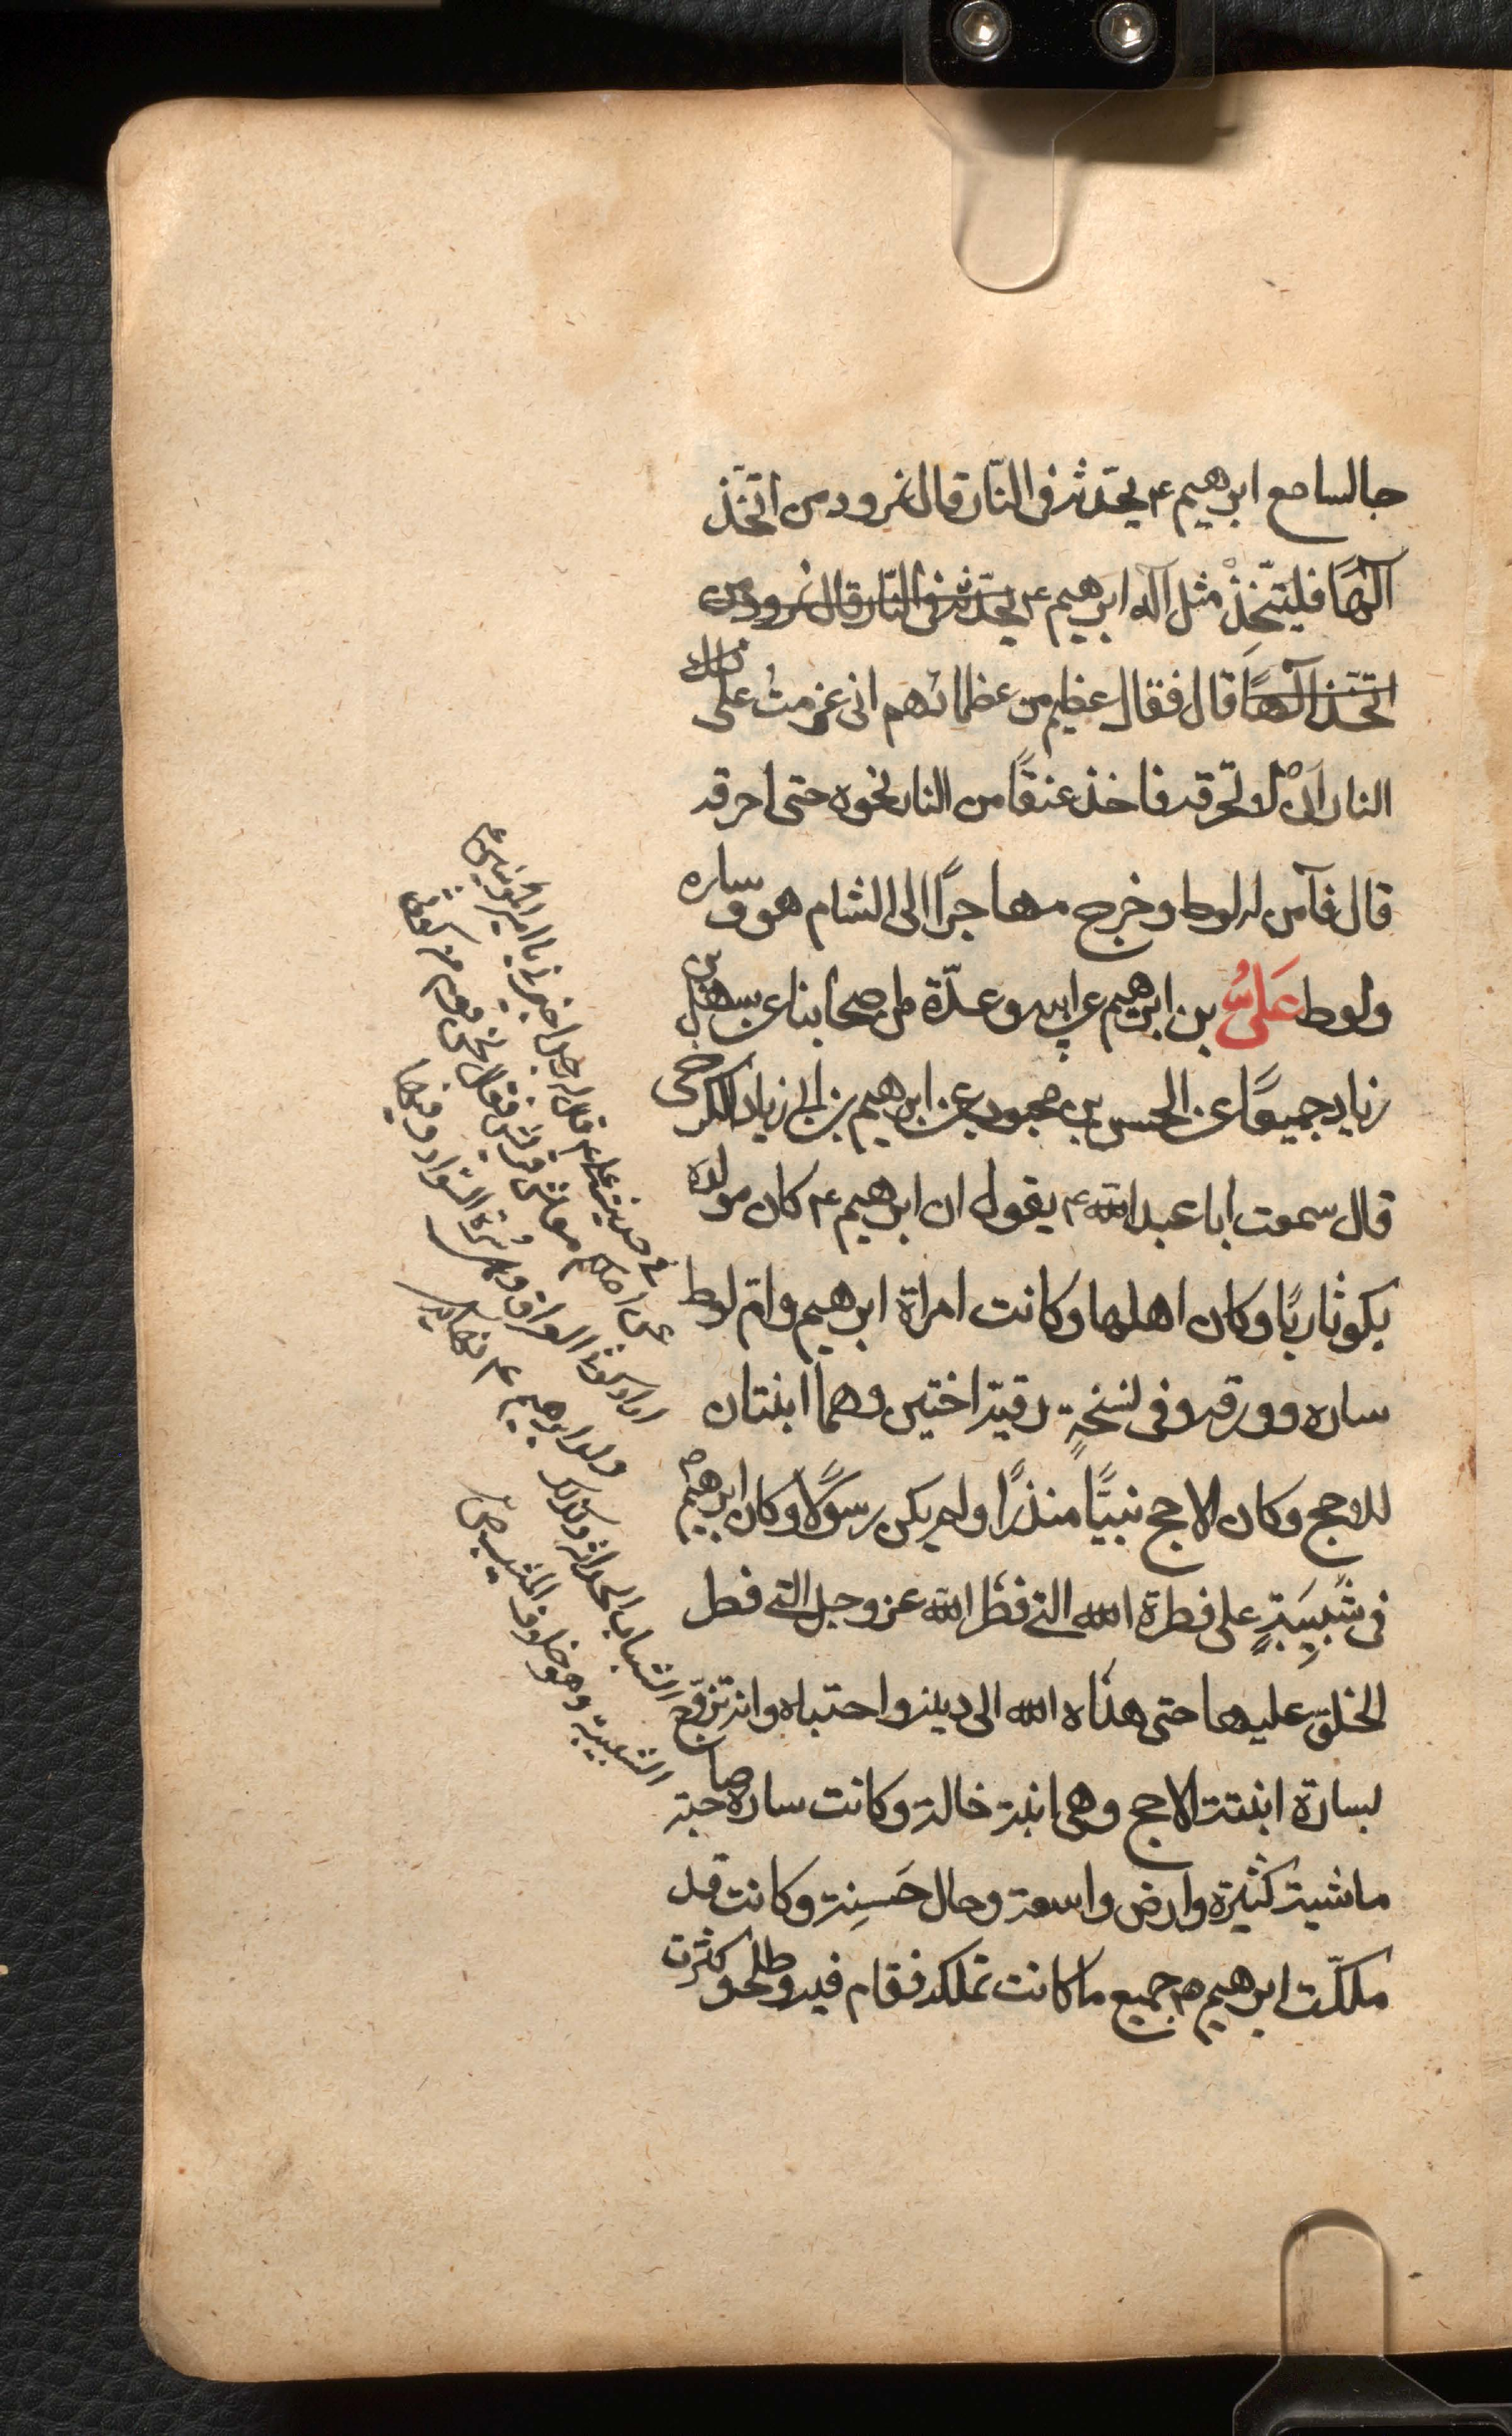 جالسا مع ابرهيم ع يحدثه في النّار قال نمرود من اتّخذ
آلهًا فليتّخذْ مثل آله ابرهيم ع يحدّثه في النّار قال نمرود من
اتّخذ آلهًا قال فقال عظيم من عظمائهم انى عزمتُ على تلك
النار انْ لا تحرقه فاخذ عنقًا من النار نحوه حتى احرقه
قال فآمن له لوط وخرج مهاجرًا الى الشام هو وساره
ولوط عَلىُّ بن ابرهيم عن ابيه وعدّة من اصحابنا عن سهل بن
زياد جميعًا عن الحسن بن محبوب عن ابرهيم بن ابى زياد الكرخى
قال سمعت ابا عبد الله ع يقول ان ابرهيم ع كان مولده
بكوثا ربًا وكان اهلها وكانت امراة ابرهيم وامّ لوط
ساره وورقه وفى نسخةٍ رقيّة اختين وهما ابنتان
للاحج وكان الاحج نبيًّا منذرًا ولم يكن رسولًا وكان ابرهيم ع
فى شَبيبَةٍ على فطرة الله التى فطر الله عز وجل التى فطر
الخلق عليها حتى هداه الله الى دينه واجتباه وانه تزوّج
بسارة ابنتت الاحج وهى ابنة خالته وكانت سارة صاحبة
ماشية كثيرة وارض واسعة وحال حَسِنة وكانت قد
ملكّت ابرهيم ع جميع ما كانت تملكه فقام فيه وطلحو كثرت
فى حديث على ع قال له رجل اخبرنى يا امير المؤمنين
عن اصلكم معاشر قريش فقال نحن قوم من كوثى
اراد كوثى العراق وهى سُرّة السواد وبها
ولد ابرهيم ع نهايه
الشباب الحداثة وكذلك
الشبيبة وهو خلاف المشيب ص